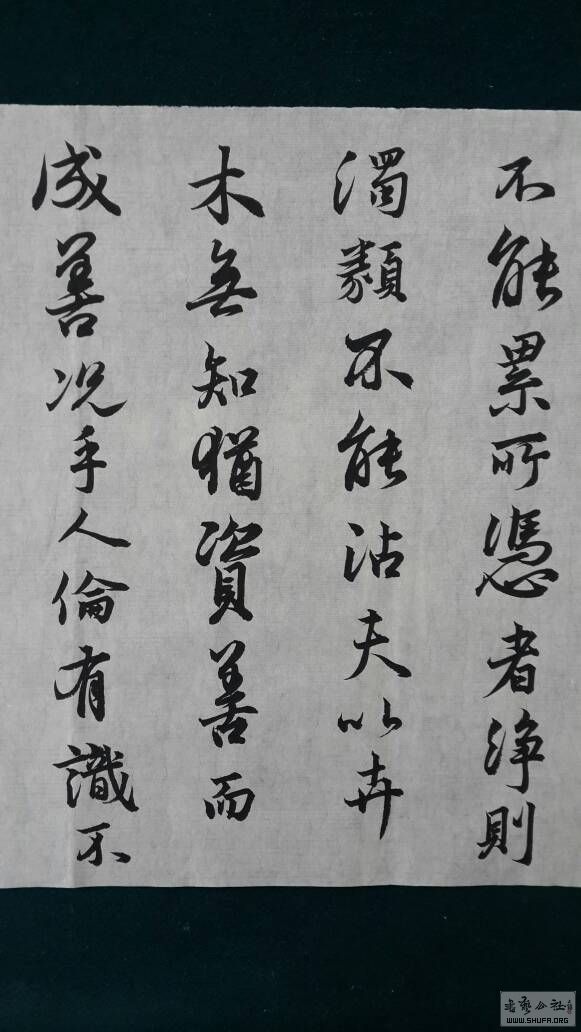 不能累所憑者浄則
濁類不能沾夫以卉
木無知猶資善而
成善况乎人倫有識不
WWW.SHUFA.ORG